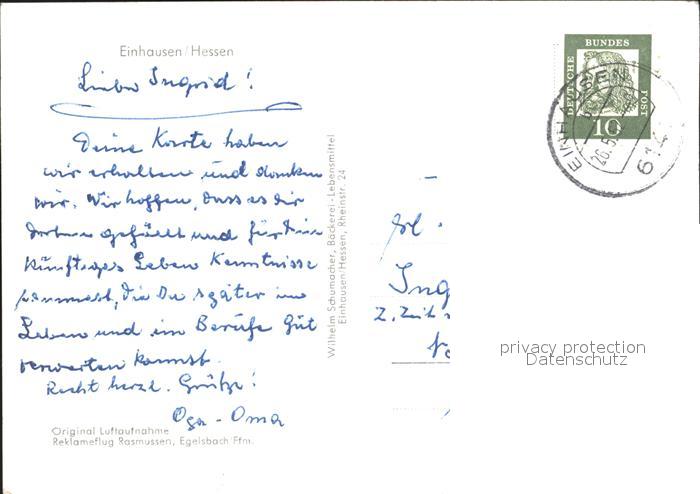 Einhausen/Hessen
Liebe Ingrid!
Deine Karte haben
wir erhalten und danken
wir. Wir hoffen, dass es dir
dorten gefällt und für dein
künftiges Leben Kenntnisse
sammelst, die Du später im
Leben und im Berufe gut
verwerten kannst.
Recht herzl. Grüße!
Opa - Oma
Original Luftaufnahme
Reklameflug Rasmussen, Egelsbach/Ffm.
Wilhelm Schumacher, Bäckerei-Lebensmittel
Einhausen/Hessen, Rheinstr. 24
DEUTSCHE
BUNDES
POST
10
EINHAUSEN
26.5.
614
Frl.
Ing
z. Zeit
privacy protection
Datenschutz